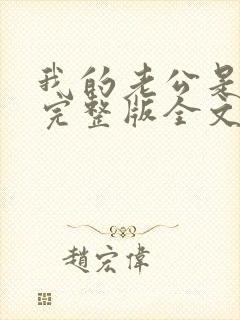 我的老公是
完整版全文
趙宏偉